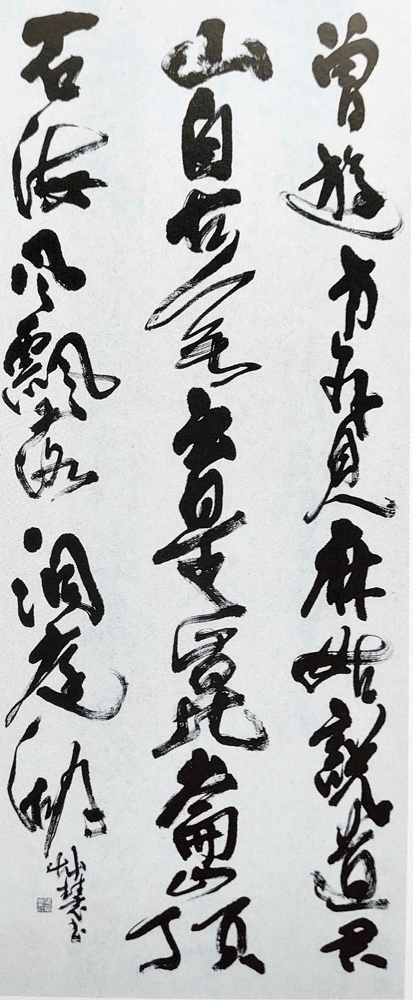 曾遊方外見麻姑說道君
山自古無云是崑崙山頂
石海风飄落洞庭湖